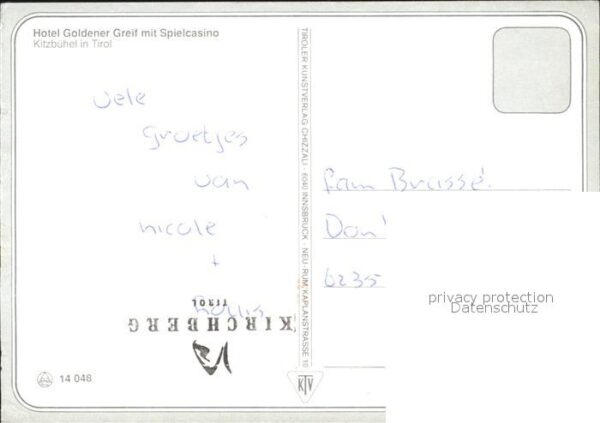 Hotel Goldener Greif mit Spielcasino
Kitzbühel in Tirol
vele
groetjes
van
nicole
+
KIRCHBERG
TIROL
14 048
TIROLER KUNSTVERLAG CHIZZALI · 6040 INNSBRUCK - NEU-RUM, KAPLANSTRASSE 16
KTV
fam Brassé.
6235
privacy protection
Datenschutz